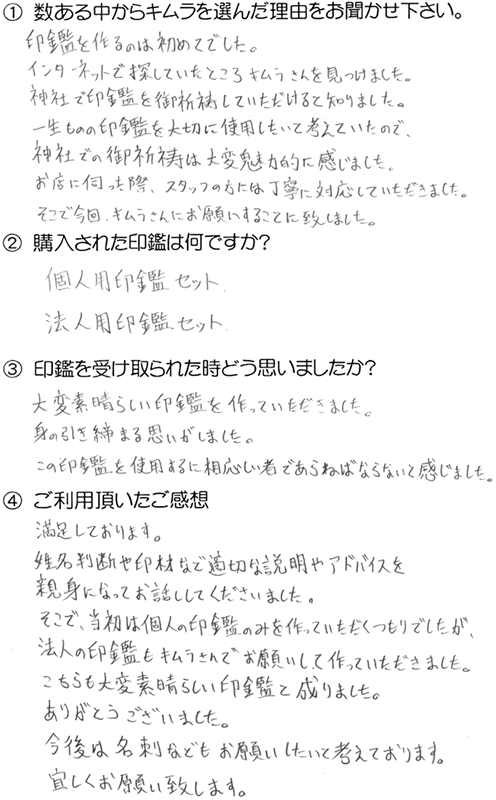 ① 数ある中からキムラを選んだ理由をお聞かせ下さい。
印鑑を作るのは初めてでした。
インターネットで探していたところキムラさんを見つけました。
神社で印鑑を御祈祷していただけると知りました。
一生ものの印鑑を大切に使用したいと考えていたので、
神社での御祈祷は大変魅力的に感じました。
お店に伺った際、スタッフの方には丁寧に対応していただきました。
そこで今回、キムラさんにお願いすることに致しました。
② 購入された印鑑は何ですか?
個人用印鑑セット
法人用印鑑セット
③ 印鑑を受け取られた時どう思いましたか?
大変素晴らしい印鑑を作っていただきました。
身の引き締まる思いがしました。
この印鑑を使用するに相応しい者であらねばならないと感じました。
④ ご利用頂いたご感想
満足しております。
姓名判断や印材など適切な説明やアドバイスを
親身になってお話ししてくださいました。
そこで、当初は個人の印鑑のみを作っていただくつもりでしたが、
法人の印鑑もキムラさんでお願いして作っていただきました。
こちらも大変素晴らしい印鑑と成りました。
ありがとうございました。
今後は名刺などもお願いしたいと考えております。
宜しくお願い致します。